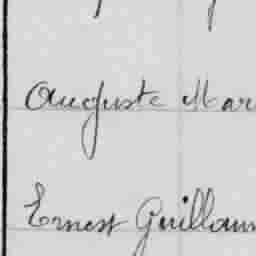 Auguste Mar
Ernest Guillaum